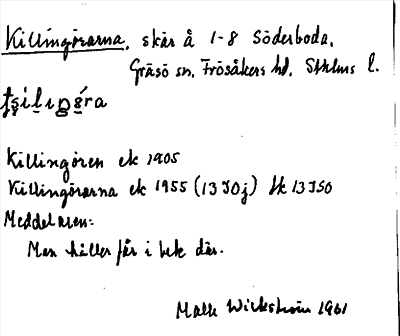 Killingörarna, skär å 1-8 Söderboda,
Gräsö sn, Frösåkers hd, Sthlms l.
Killingören ek 1905
Killingörarna ek 1955 (13I0j) bk 13I50
Meddelaren:
Man håller får i bete där.
Mats Wikström 1961